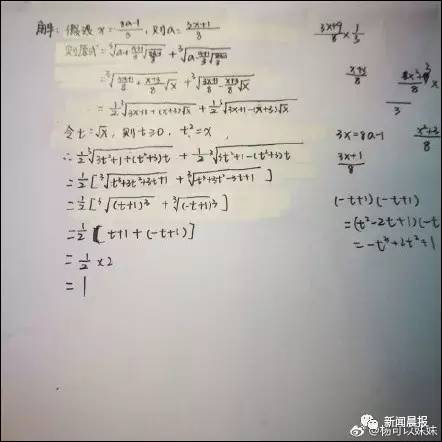 解: 假设 x = (8a-1)/3, 则 a = (3x+1)/8
则原式 = ∛(a + (x+1)/3 √((8a-1)/3)) + ∛(a - (a+1)/3 √((8a-1)/3))
= ∛((3x+1)/8 + (x+3)/8 √x) + ∛((3x+1)/8 - (x+3)/8 √x)
= 1/2 ∛(3x+1+(x+3)√x) + 1/2 ∛(3x+1-(x+3)√x)
令 t=√x, 则 t≥0, t²=x,
∴ 1/2 ∛(3t²+1+(t²+3)t) + 1/2 ∛(3t²+1-(t²+3)t)
= 1/2 [∛(t³+3t²+3t+1) + ∛(-t³+3t²-3t+1)]
= 1/2 [∛((t+1)³) + ∛((-t+1)³)]
= 1/2 [t+1+(-t+1)]
= 1/2 × 2
= 1
(3x+9)/8 × 1/3
(x+3)/8
3
3x = 8a-1
(3x+1)/8
(-t+1)(-t+1)
= (t²-2t+1)(-t
= -t³+2t²+1
新闻晨报
@杨可以妹妹